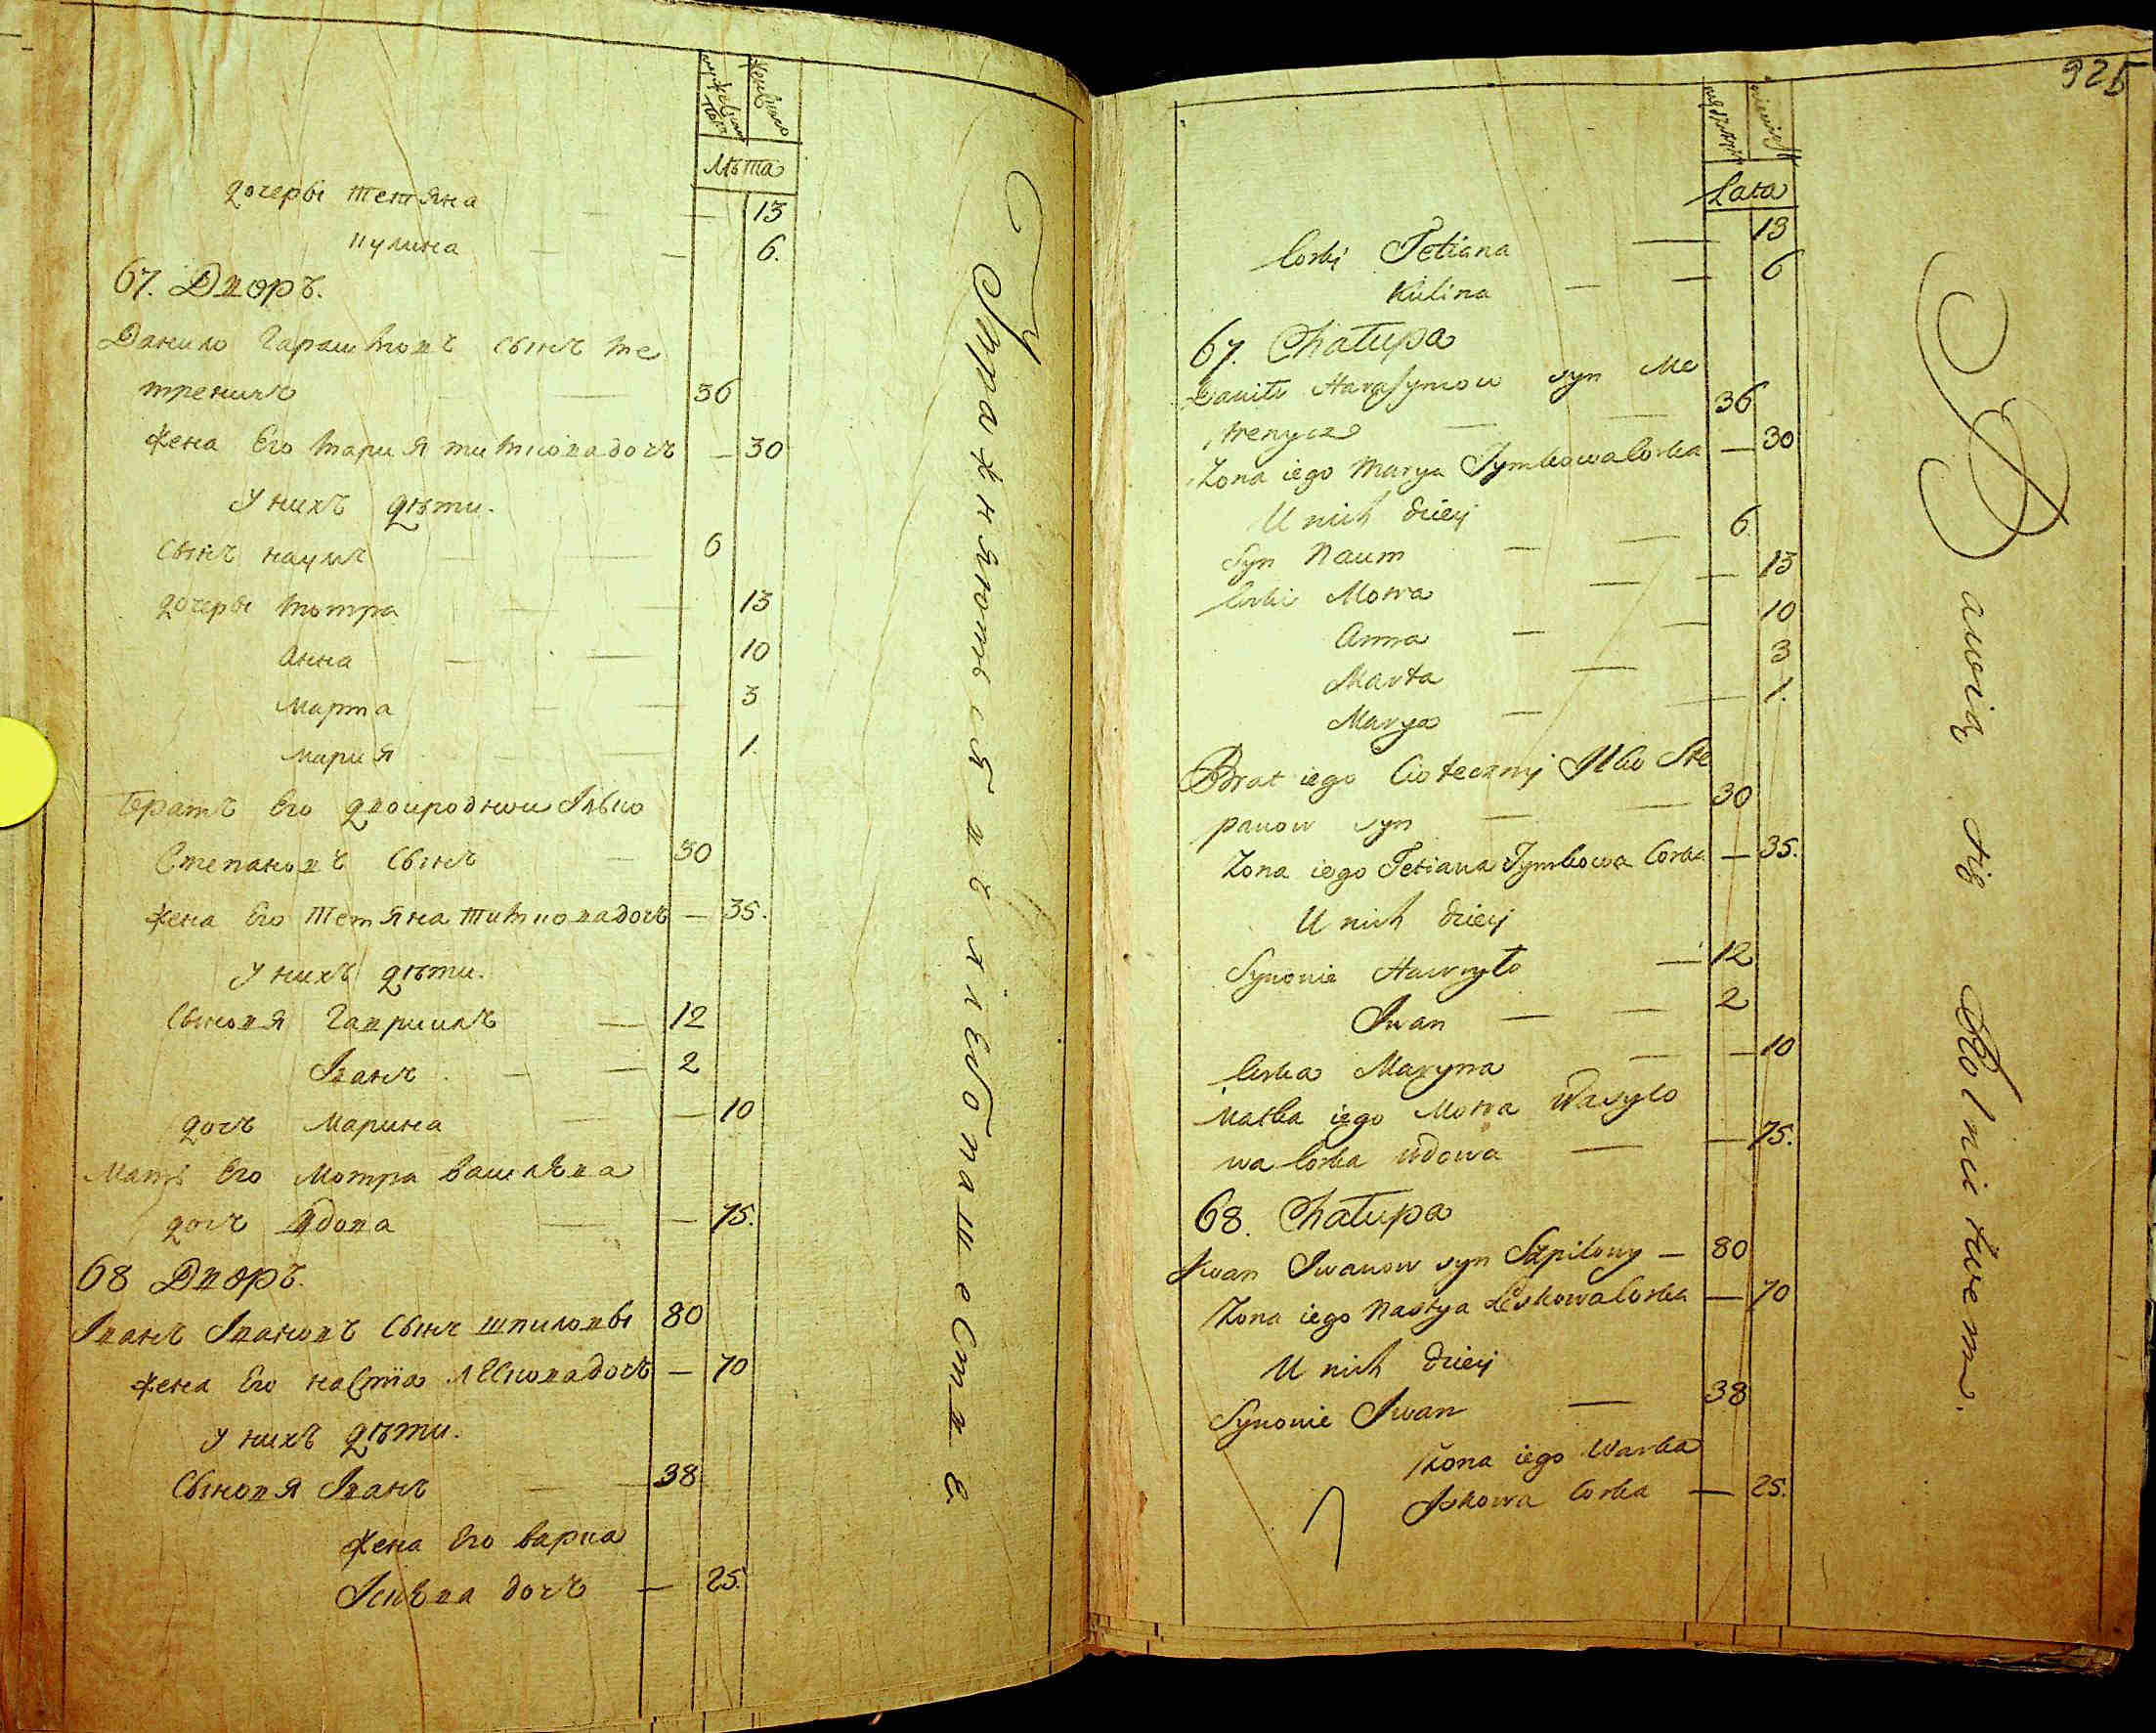 Лѣта
дочери тетяна — — 13
кулина — — 6.
67. Дворъ.
Данило Гарасимовъ сынъ ме
треничъ — — 36
жена Его мария тимковадочъ — 30
У нихъ дѣти.
Сынъ наумъ — — 6
дочери мотра — — 13
анна — — 10
марта — — 3
мария — — 1.
братъ Его двоиродною Илько
Степановъ Сынъ — 30
жена Его тетяна тимковадочъ — 35.
У нихъ дѣти.
Сыновя Гавриилъ — 12
Іванъ — — 2
дочъ марина — — 10
Мать Его мотра василѣва
дочъ вдова — — 75.
68 Дворъ.
Іванъ Івановъ Сынъ шпиловы 80
жена Его настіа лесковадочъ — 70
У нихъ дѣти.
Сыновя Іванъ — — 38.
жена Его варка
Іскова дочъ — 25.
Упражняются въ хлебопашествѣ.
925
Lata
Corki Tetiana — 13
Kulina — — 6
67. Chałupa
Daniło Harasymow syn Me
trenycz — — 36
Zona iego Marya Tymkowa Corka — 30
U nich dzieci
Syn Naum — — 6.
Corki Motra — — 13
Anna — — 10
Marta — 3
Marya — — 1.
Brat iego Cioteczny Ilko Ste
panow syn — — 30
Zona iego Tetiana Tymkowa Corka — 35.
U nich dzieci
Synowie Hawryło — 12
Iwan — — 2
Corka Maryna — — 10
Matka iego Motra Wasylo
wa Corka wdowa — — 75.
68. Chałupa
Iwan Iwanow syn Szpilowy — 80
Zona iego Nastya Leskowa Corka — 70
U nich dzieci
Synowie Iwan — 38
Zona iego Warka
Iskowa Corka — 25.
Bawią się Rolnictwem.